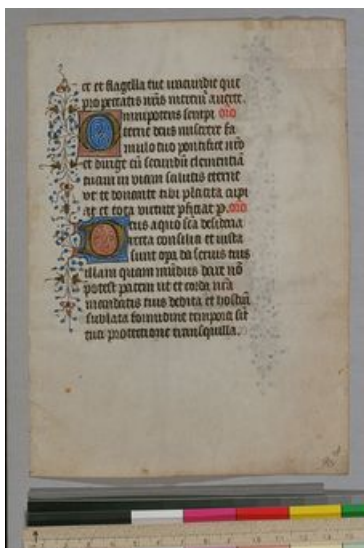 et et flagella tue iracundie que
pro peccatis nr̄is meremur auerte.
Omnipotens sempi oro
terne deus miserere fa
mulo tuo pontifice nr̄o
et dirige eū secundū clementiā
tuam in viam salutis eterne
ut te donante tibi placita cupi
at et tota virtute pficiat p. oro
Deus a quo sc̄a desideria
recta consilia et iusta
sunt opa da seruis tuis
illam quam mūdus dare nō
potest pacem ut et corda nr̄a
mandatis tuis dedita et hostiū
sublata formidine tempora sit
tua protectione tranquilla.